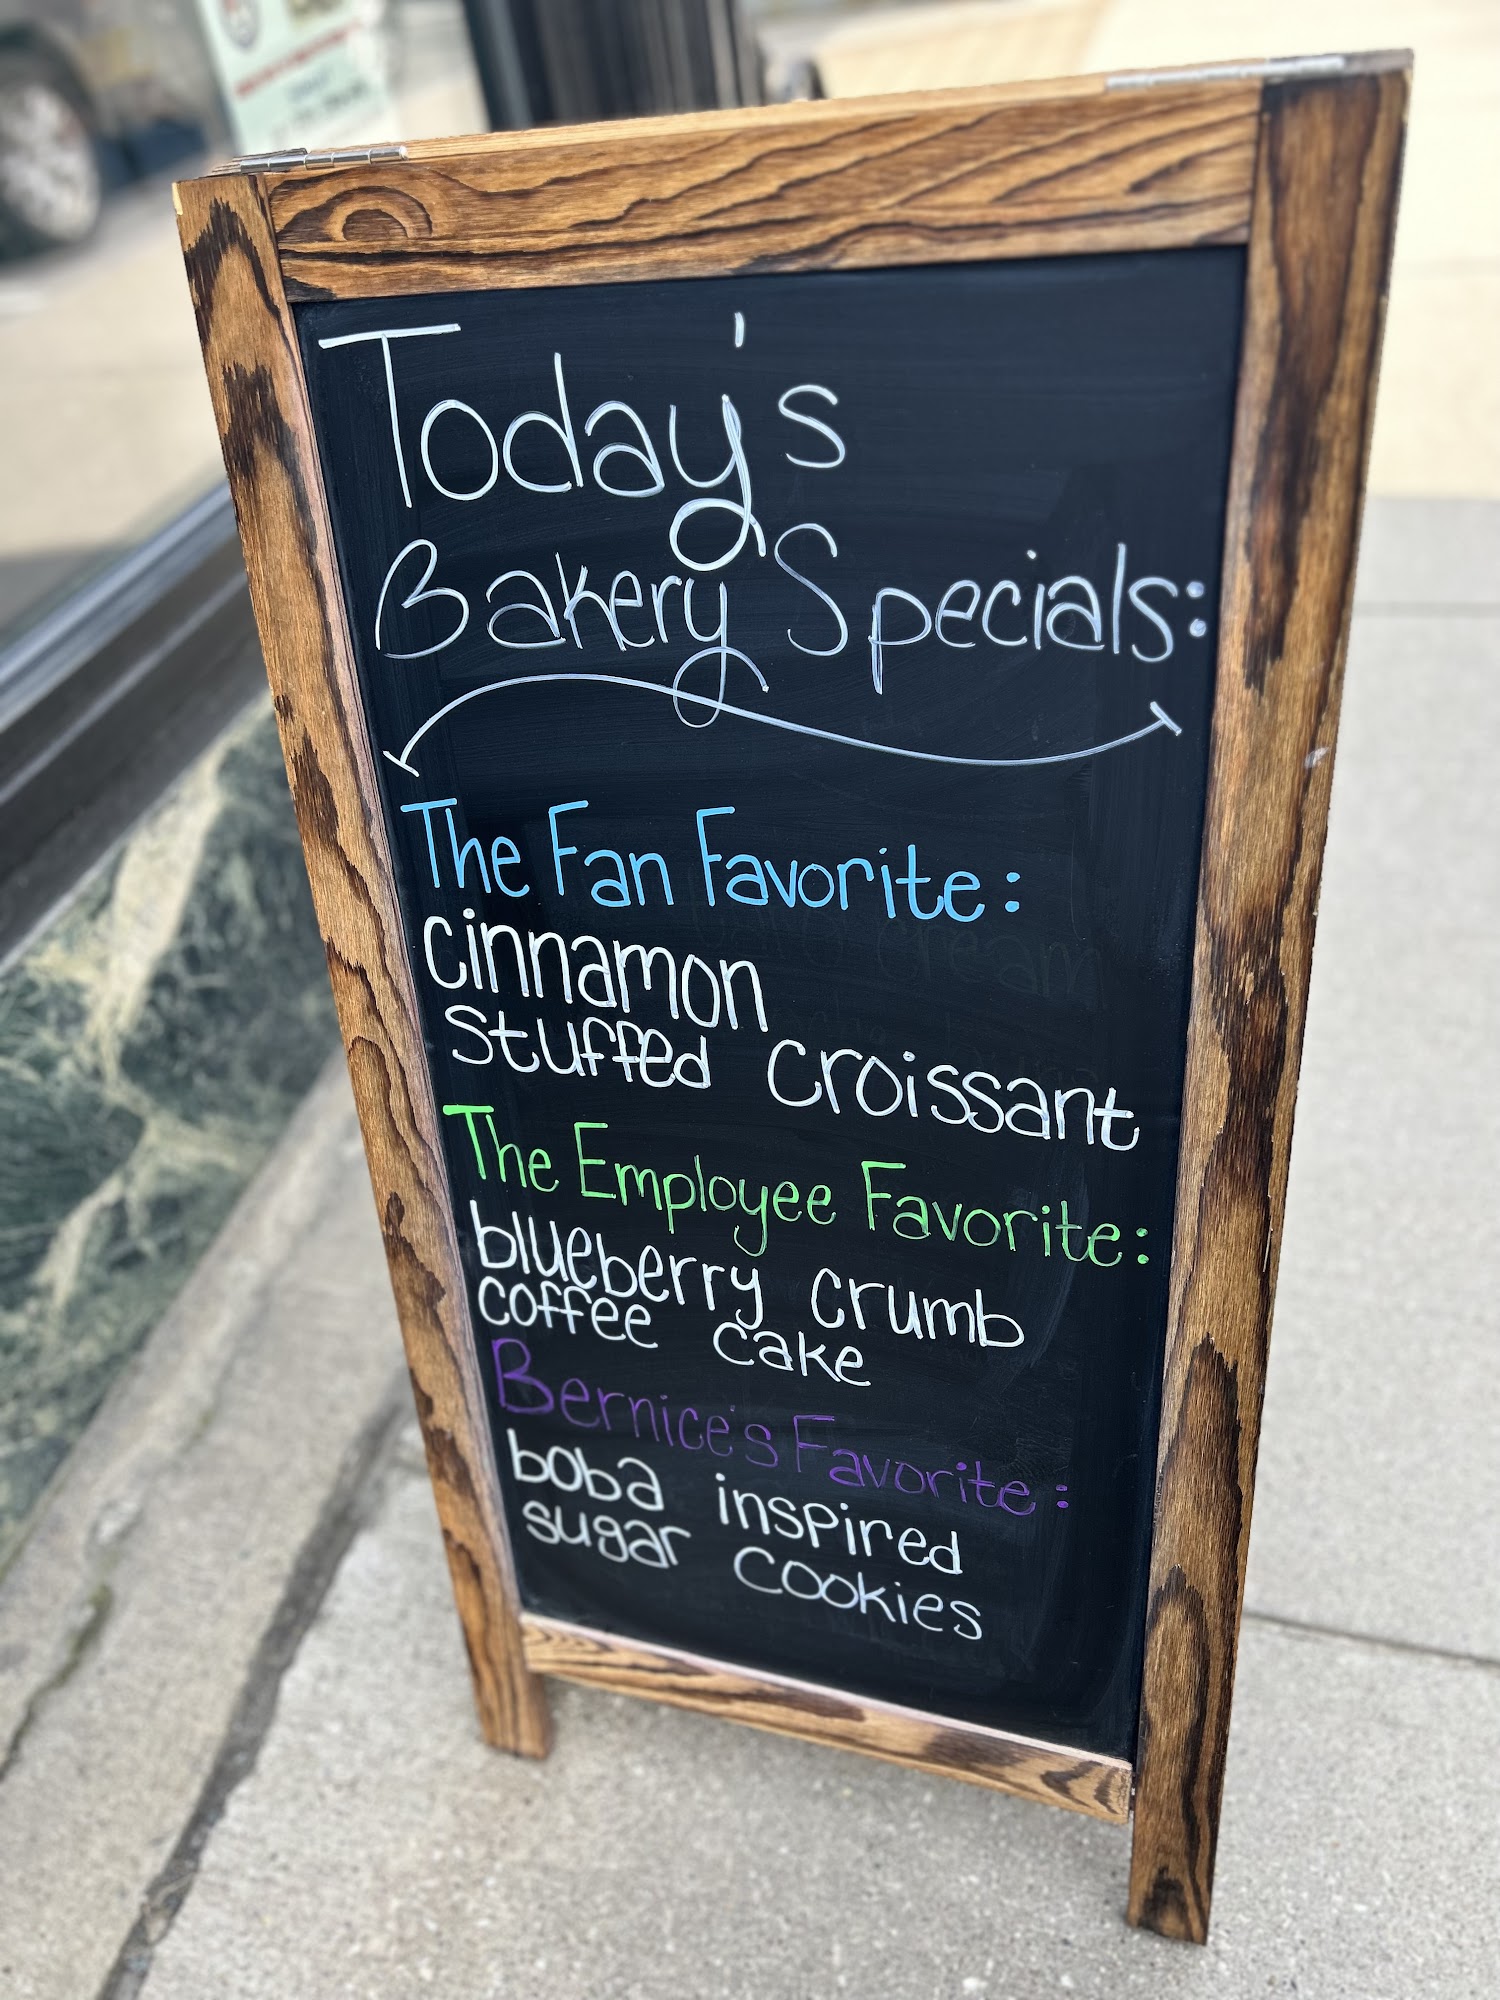 Today's
Bakery Specials:
The Fan Favorite:
cinnamon
stuffed croissant
The Employee Favorite:
blueberry crumb
coffee cake
Bernice's Favorite:
boba inspired
sugar cookies